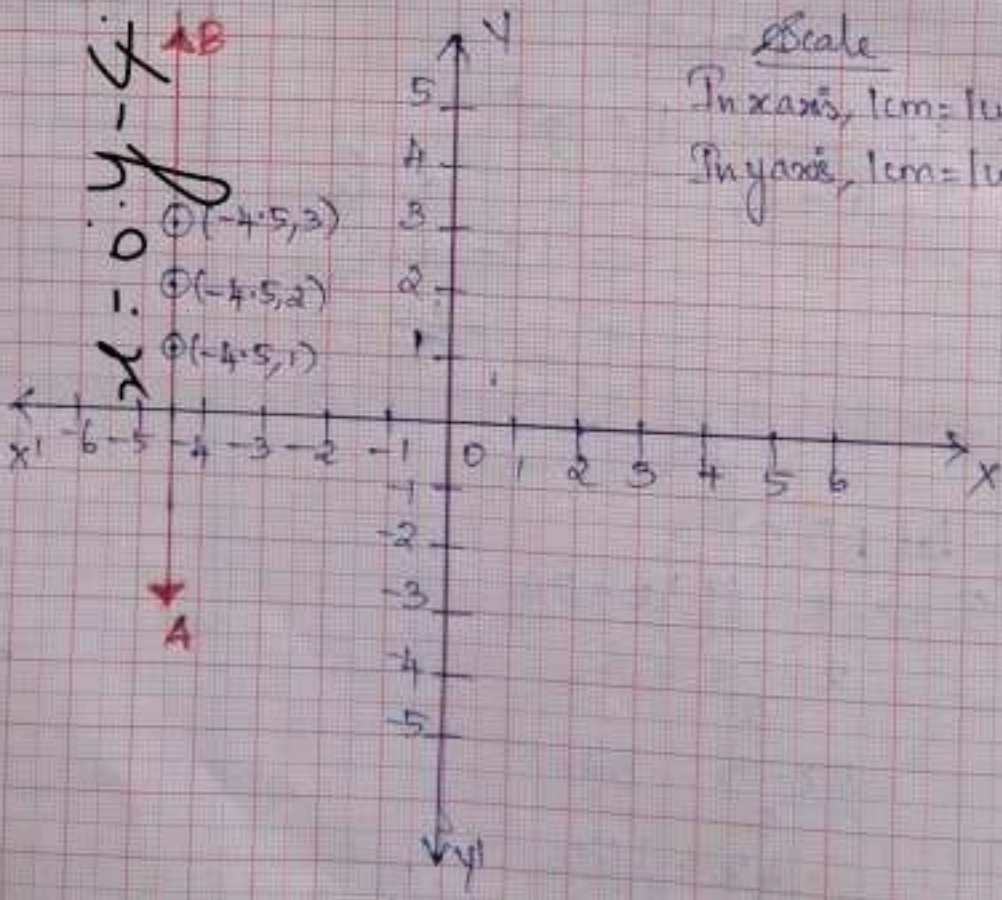 Scale
In x axis, 1cm = 1u
In y axis, 1cm = 1u
B
Y
5
4
(-4.5, 3) 3
(-4.5, 2) 2
(-4.5, 1) 1
X' -6 -5 -4 -3 -2 -1 0 1 2 3 4 5 6 X
-1
-2
-3
A
-4
-5
Y'